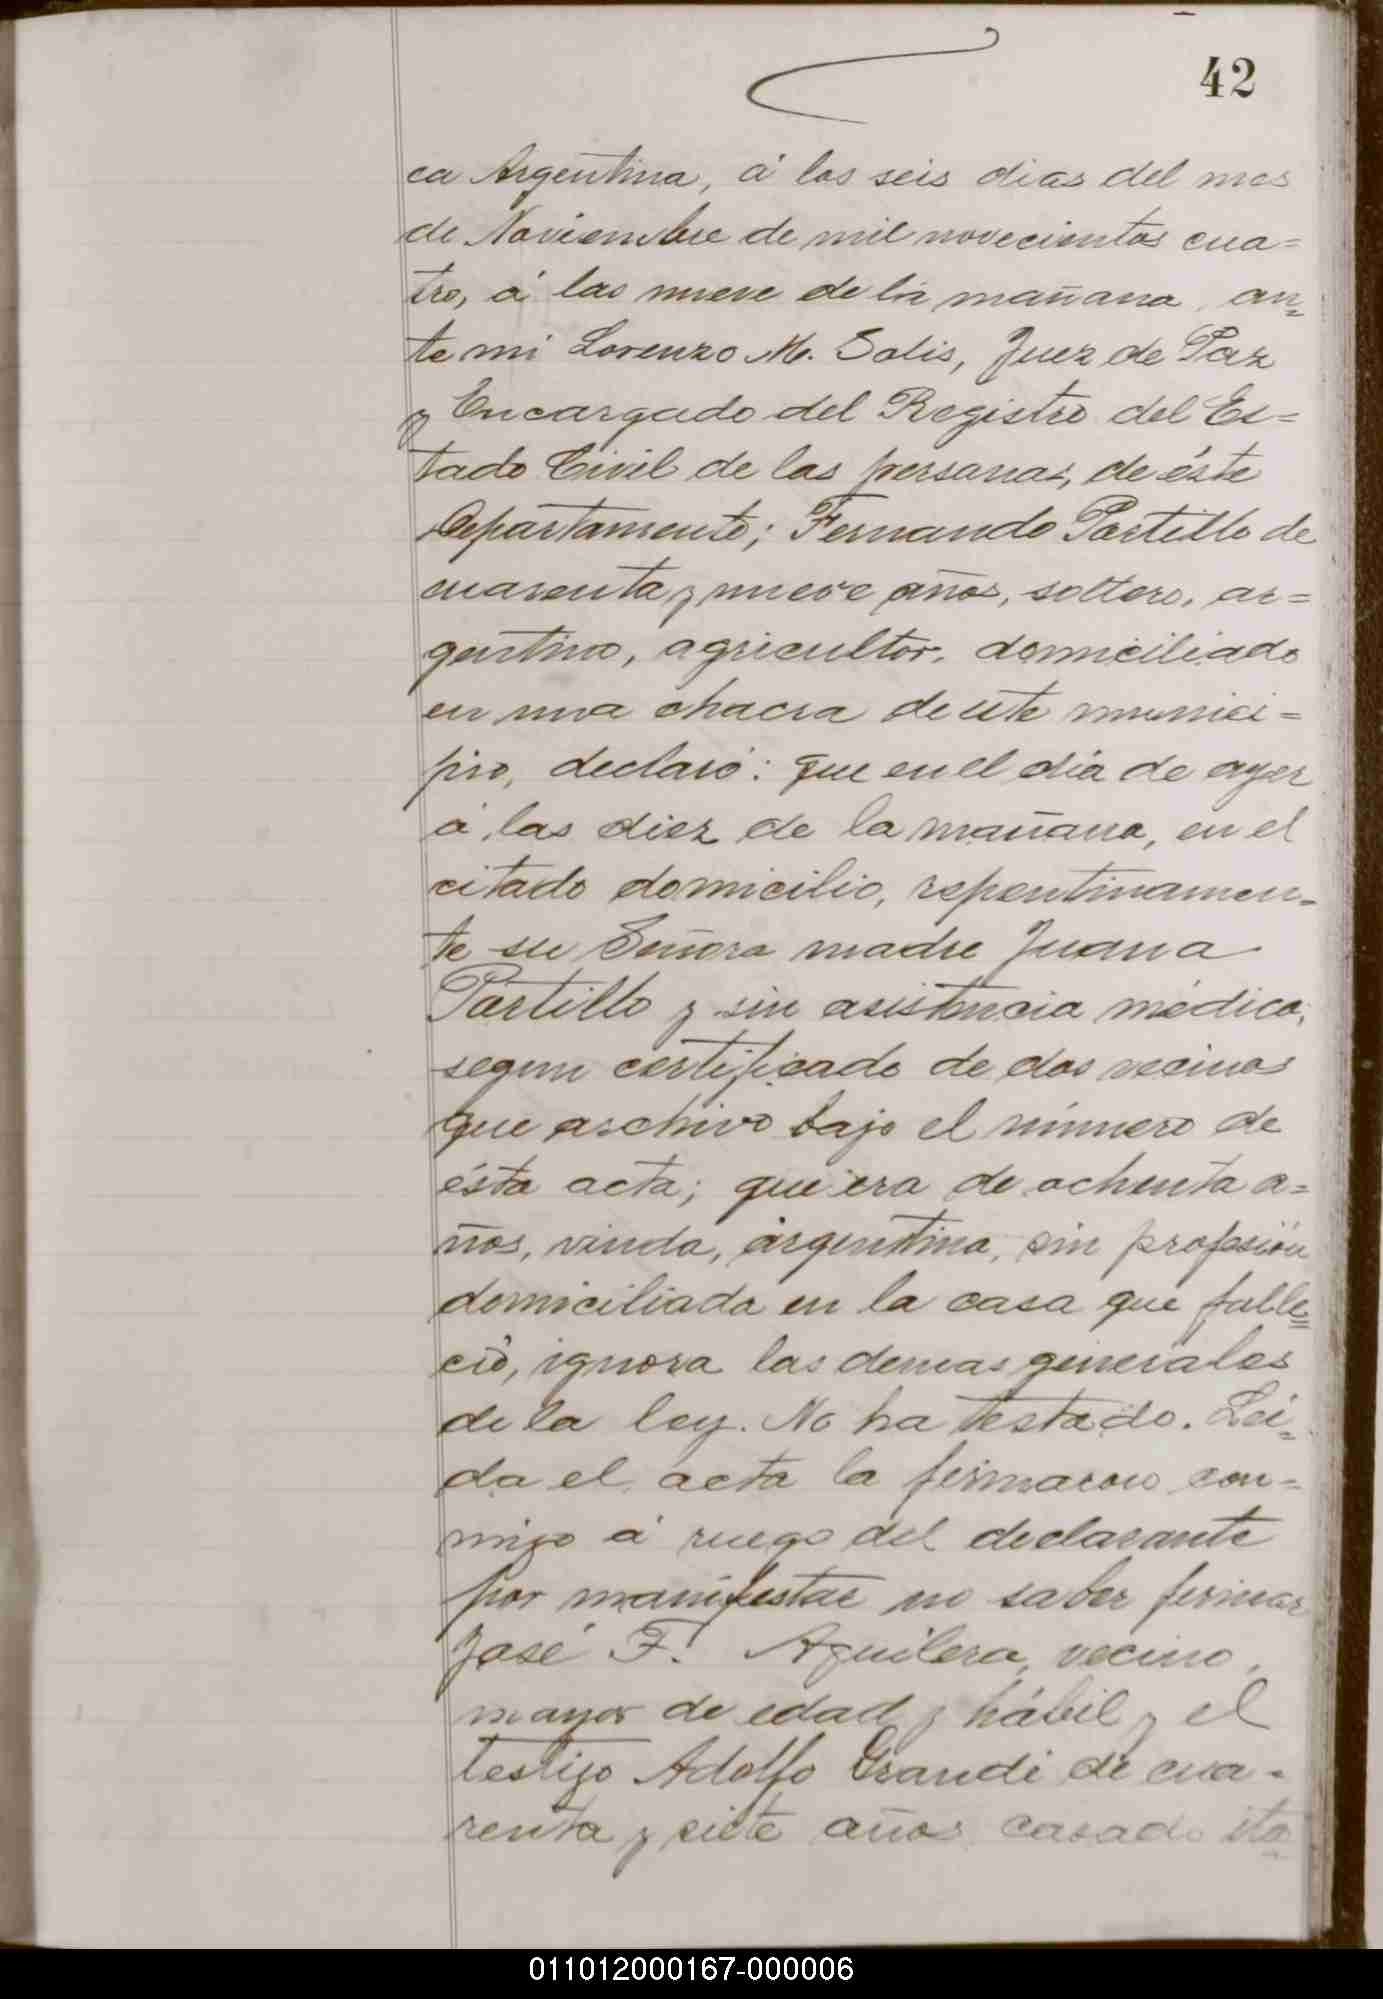 42
ca Argentina, á los seis dias del mes
de Noviembre de mil novecientos cua=
tro, á las nueve de la mañana, an=
te mi Lorenzo M. Solis, Juez de Paz
y Encargado del Registro del Es=
tado Civil de las personas, de éste
Departamento; Fernando Portillo de
cuarenta y nueve años, soltero, ar=
gentino, agricultor, domiciliado
en una chacra de este munici=
pio, declaró: que en el día de ayer
á las diez de la mañana, en el
citado domicilio, repentinamen=
te su Señora madre Juana
Portillo y sin asistencia médica,
segun certificado de dos vecinos
que archivo bajo el número de
ésta acta; que era de ochenta a=
ños, viuda, argentina, sin profesión
domiciliada en la casa que falle=
ció, ignora las demas generales
de la ley. No ha testado. Lei=
da el acta la firmaron con=
migo á ruego del declarante
por manifestar no saber firmar
José F. Aguilera, vecino,
mayor de edad y hábil y el
testigo Adolfo Grandi de cua=
renta y siete años casado ita
011012000167-000006